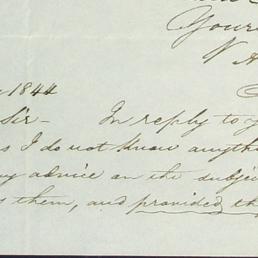 Your
1844
Sir - In reply to y
s I do not know anyth
ny advice on the subje
s them, and provided th